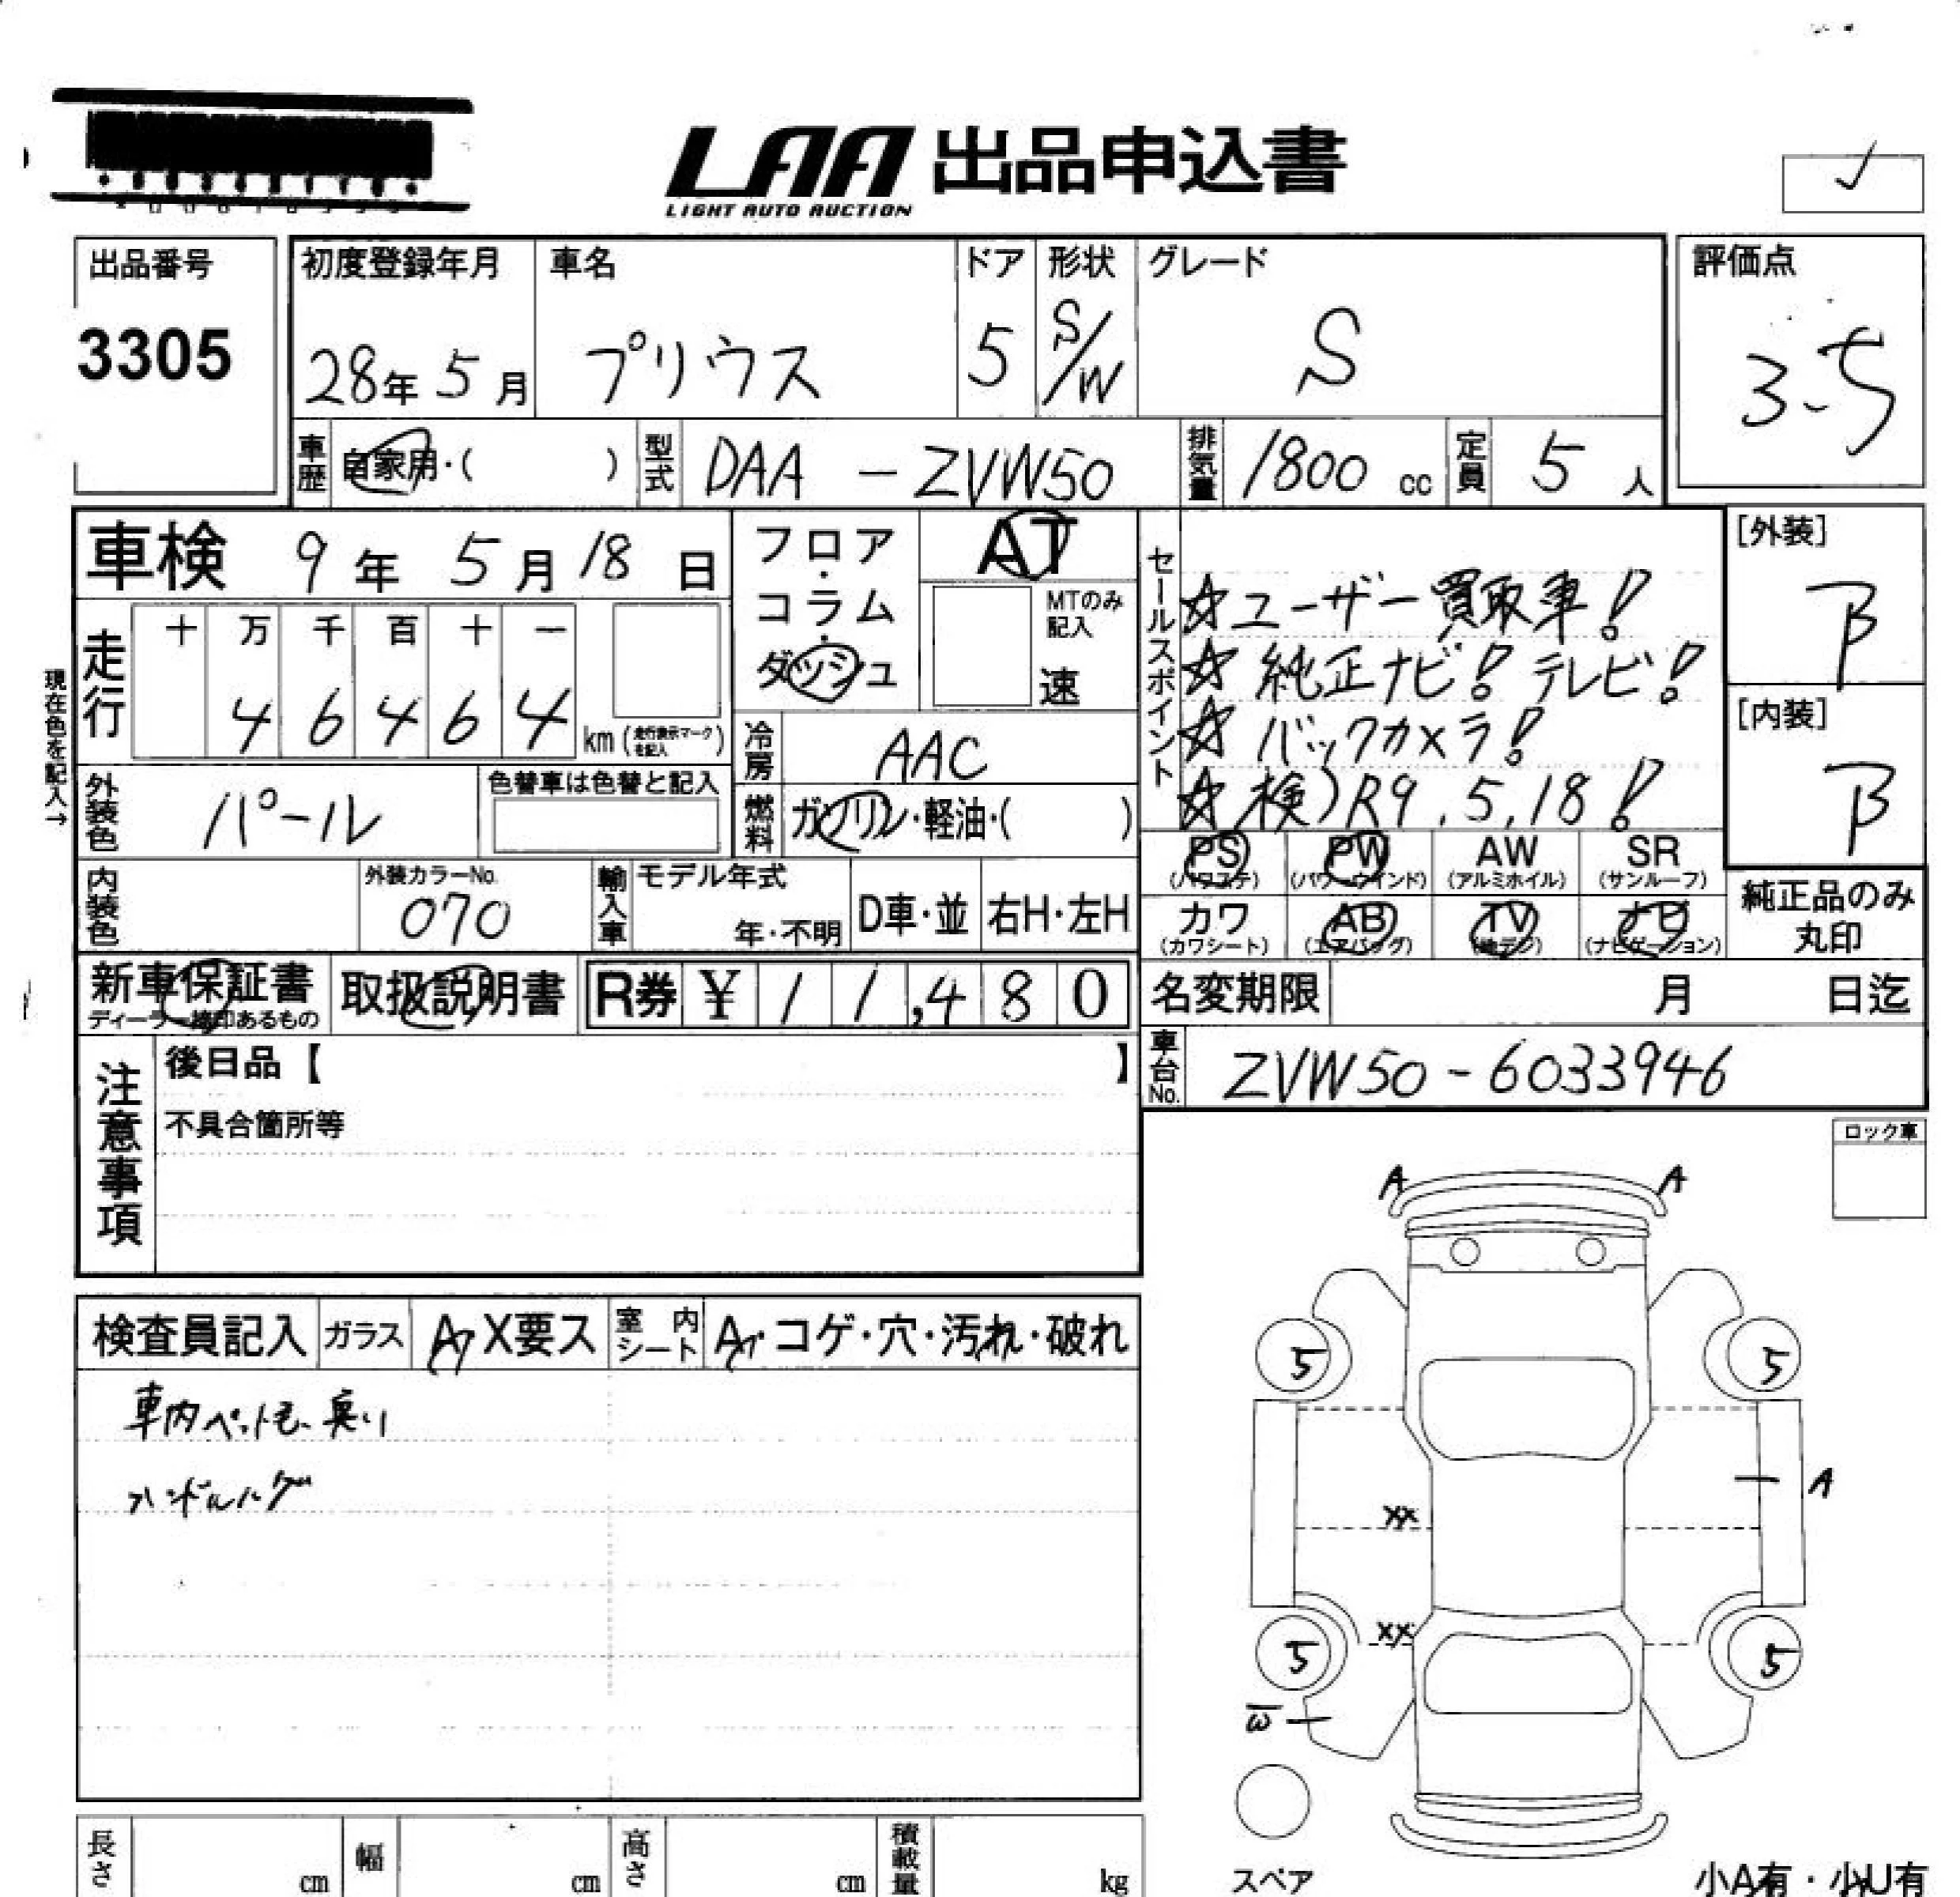 LAA 出品申込書
LIGHT AUTO AUCTION
出品番号
3305
初度登録年月
28年 5月
車名
プリウス
ドア
5
形状
S/W
グレード
S
評価点
3.5
車歴
自家用・( )
型式
DAA - ZVW50
排気量
1800 cc
定員
5 人
車検 9年 5月 18日
フロア・コラム・ダッシュ
AT
MTのみ記入
速
セールスポイント
☆ユーザー買取車!
☆純正ナビ!テレビ!
☆バックカメラ!
☆検)R9.5.18!
[外装]
B
[内装]
B
現在色を記入→
走行
十 万 千 百 十 一
4 6 4 6 4
km(走行表示マークを記入)
冷房
AAC
外装色
パール
色替車は色替と記入
燃料
ガソリン・軽油・( )
内装色
外装カラーNo.
070
輸入車
モデル年式
年・不明
D車・並
右H・左H
PS
(パワステ)
PW
(パワーウインド)
AW
(アルミホイル)
SR
(サンルーフ)
カワ
(カワシート)
AB
(エアバッグ)
TV
(地デジ)
ナビ
(ナビゲーション)
純正品のみ
丸印
新車保証書
ディーラー捺印あるもの
取扱説明書
R券 ¥ 11,480
名変期限 月 日迄
注意事項
後日品【 】
不具合箇所等
車台No.
ZVW50-6033946
ロック車
検査員記入
ガラス
A・X要ス
室内シート
A・コゲ・穴・汚れ・破れ
車内ペット毛、臭い
ハンドルハゲ
A A
5 5
A
XX
XX
5 5
W
スペア
小A有・小U有
長さ cm
幅 cm
高さ cm
積載量 kg